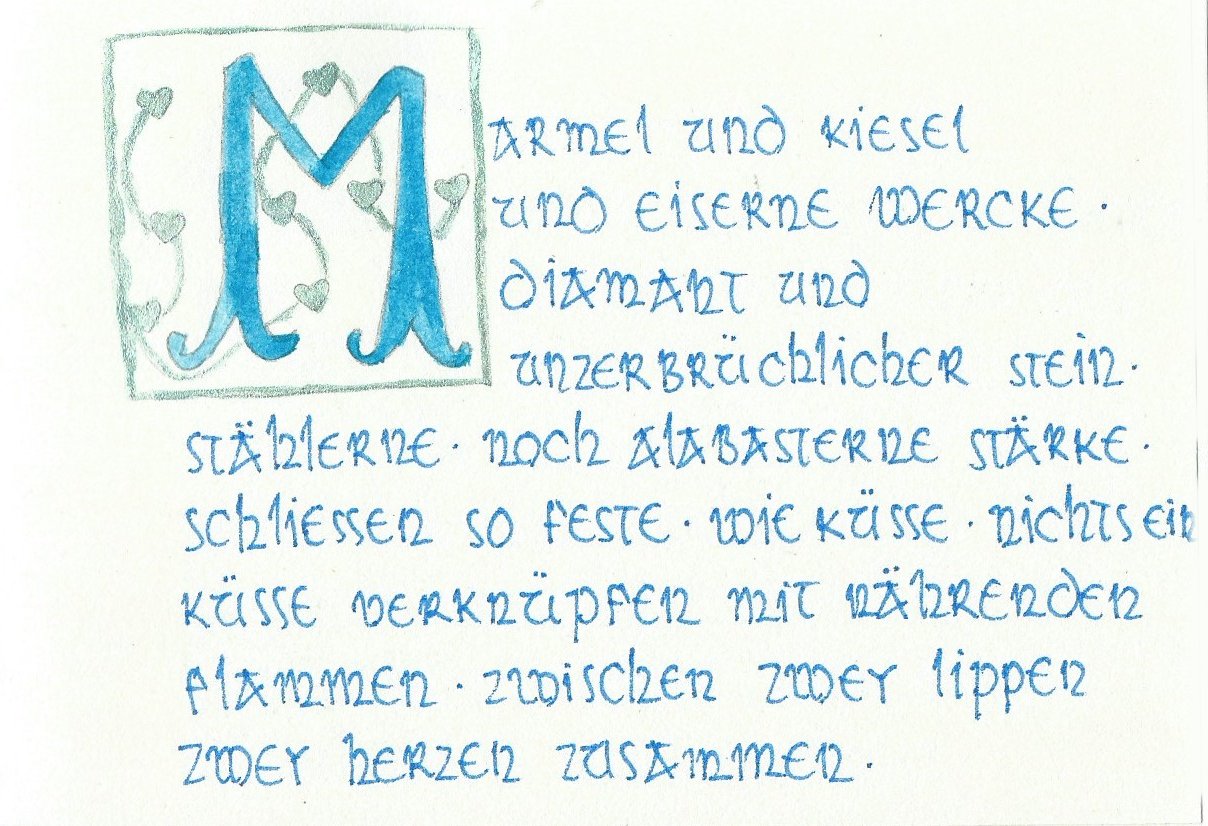 MARMEl und KiESEl
und EiSERNE WERCKE ·
diAMANT und
UNZERBRÜChliChER STEiN ·
STÄhlERNE · NOCh AlABASTERNE STÄRKE ·
SChliESSEN SO FESTE · WiE KÜSSE · NiChTS EiN
KÜSSE VERKNÜpFEN MiT NÄhRENdEN
FlAMMEN · ZWiSChEN ZWEY lippEN
ZWEY hERZEN ZUSAMMEN ·